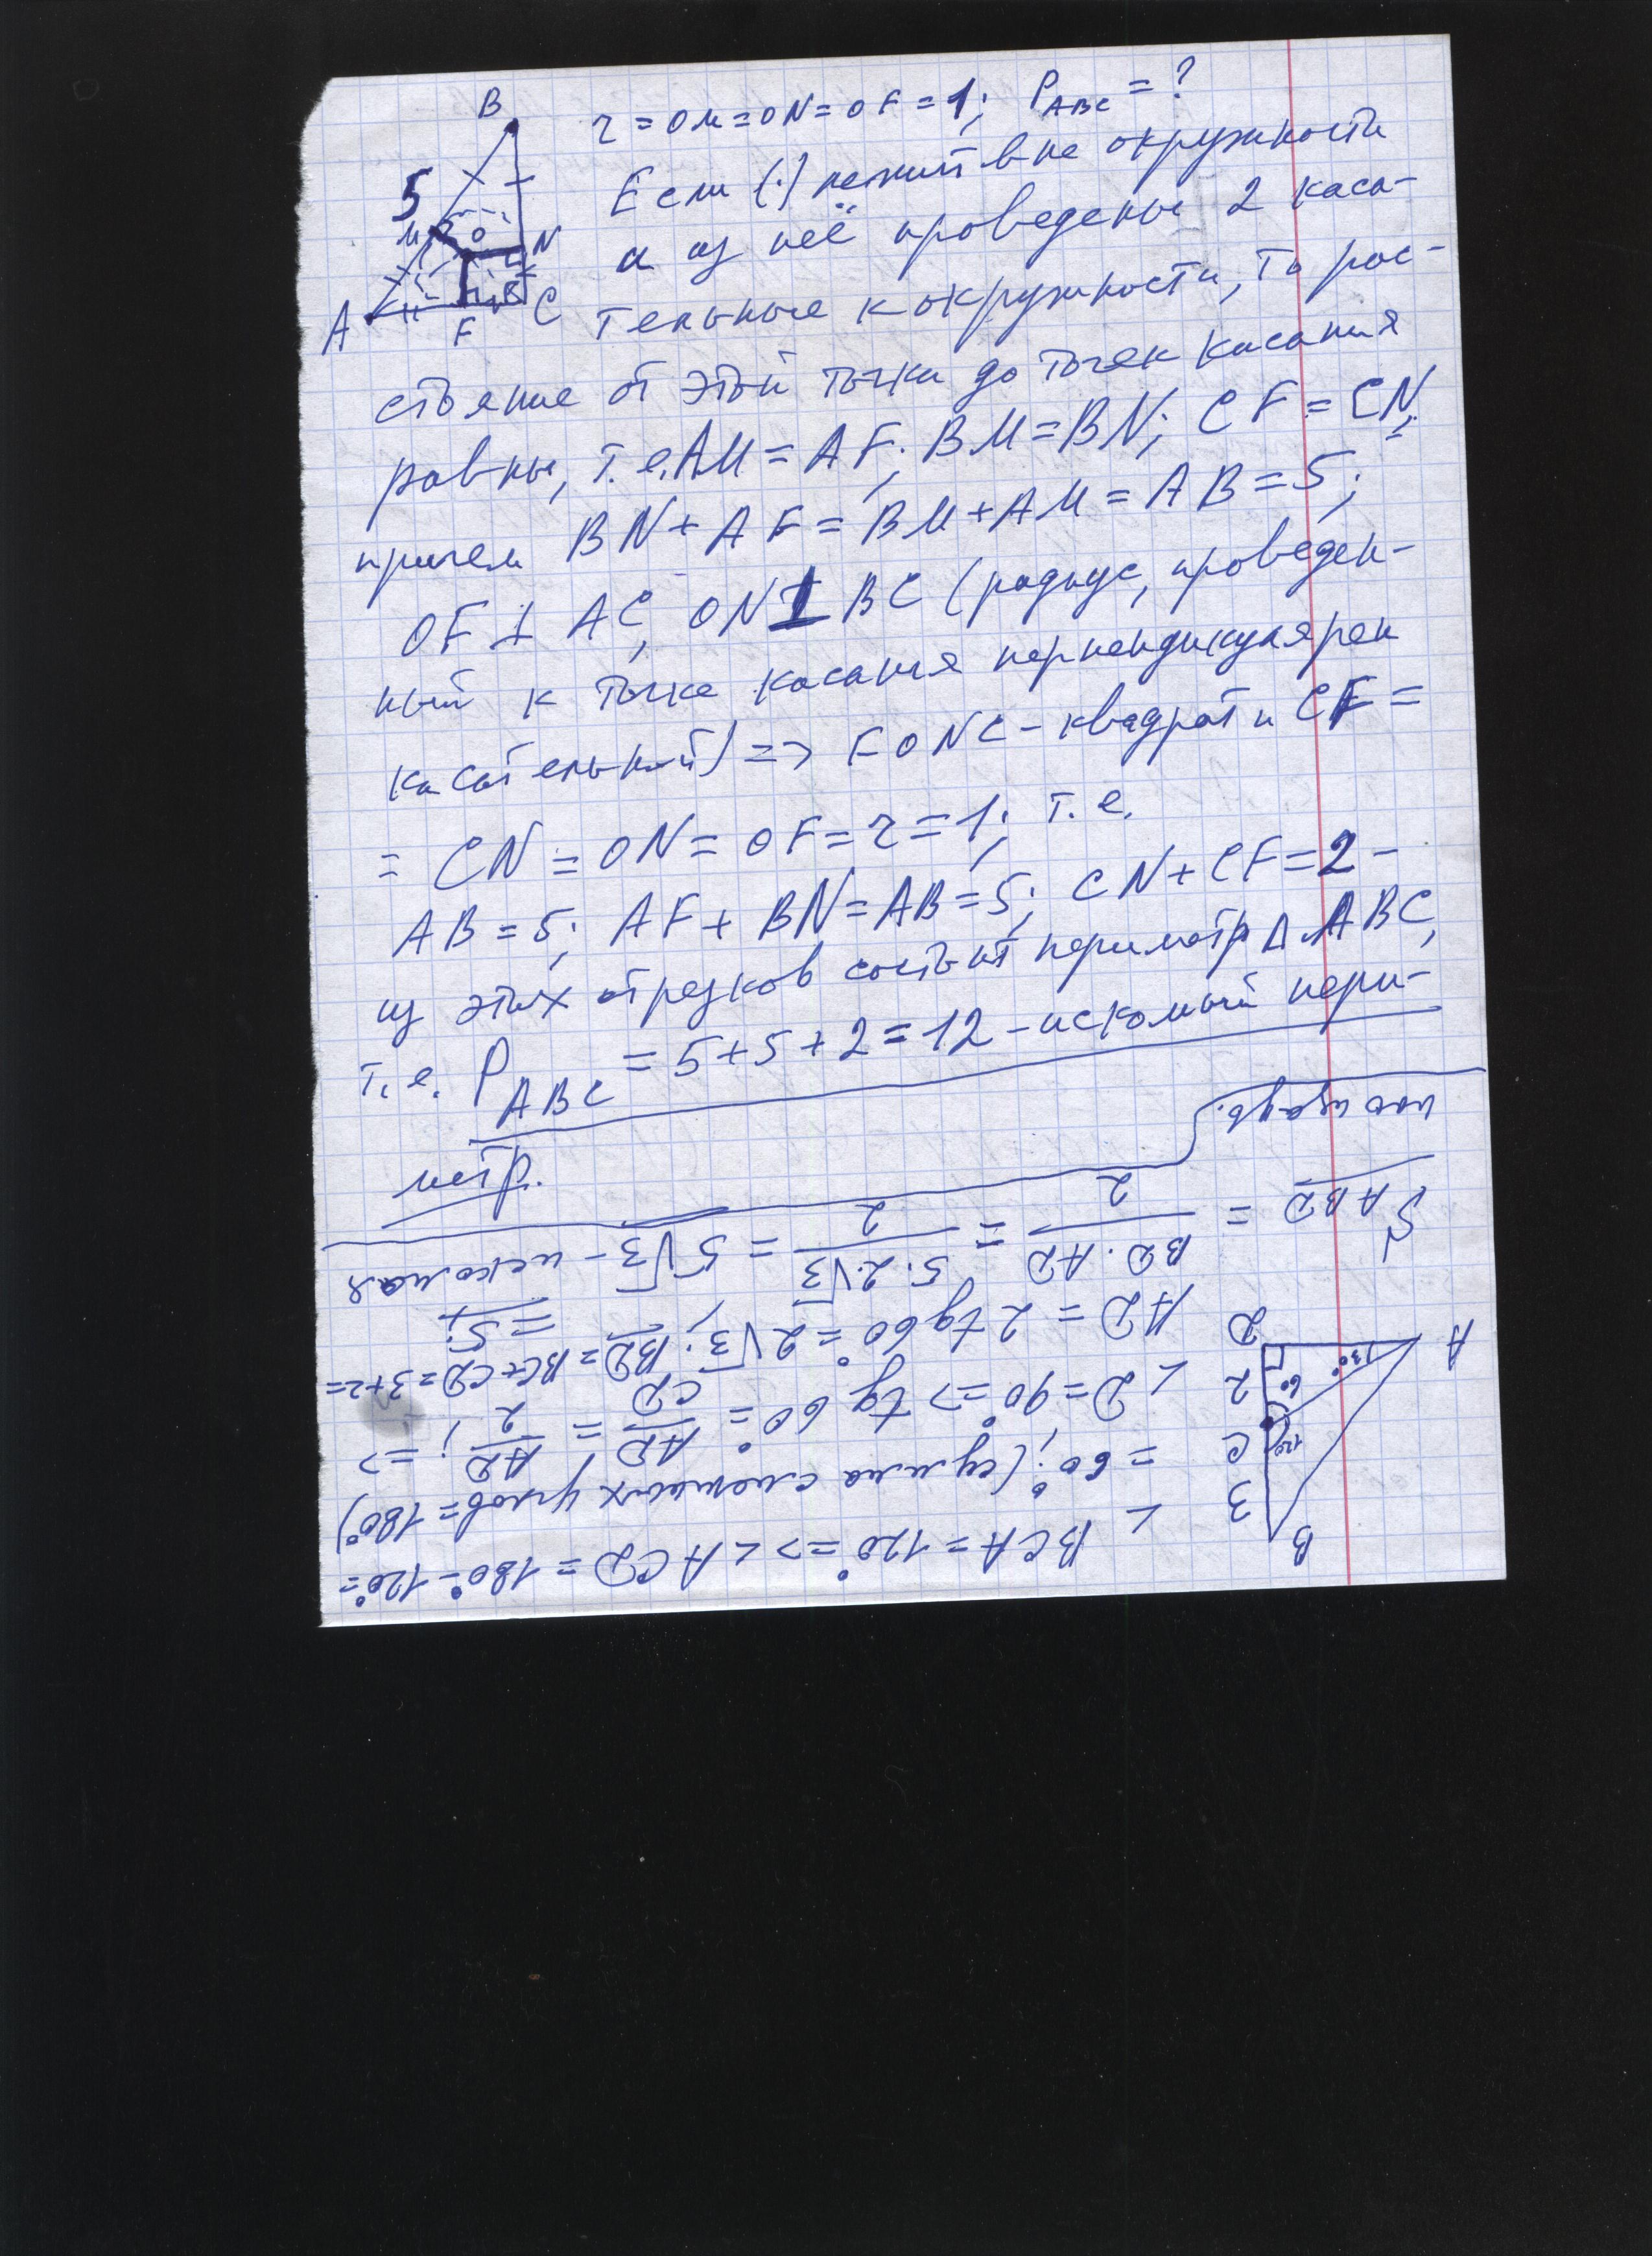 r = OM = ON = OF = 1; P_ABC = ?
Если (·) лежит вне окружности
и из неё проведены 2 каса-
тельные к окружности, то рас-
стояние от этой точки до точек касания
равны, т.е. AM = AF; BM = BN; CF = CN;
причем BN + AF = BM + AM = AB = 5;
OF ⊥ AC, ON ⊥ BC (радиус, проведен-
ный к точке касания перпендикулярен
касательной) => FONC - квадрат и CF =
= CN = ON = OF = r = 1; т.е.
AB = 5; AF + BN = AB = 5; CN + CF = 2 -
из этих отрезков состоит периметр Δ ABC,
т.е. P_ABC = 5 + 5 + 2 = 12 - искомый пери-
метр.
B
5
M
O
N
A
F
C
∠ BCA = 120° => ∠ ACD = 180° - 120° =
= 60°; (сумма смежных углов = 180°)
∠ D = 90° => tg 60° = AD/CD = AD/2; =>
AD = 2 tg 60° = 2√3; BD = BC + CD = 3 + 2 =
= 5;
S_ABD = BD · AD / 2 = 5 · 2√3 / 2 = 5√3 - искомая
площадь.
B
3
C
120°
60°
2
30°
D
A